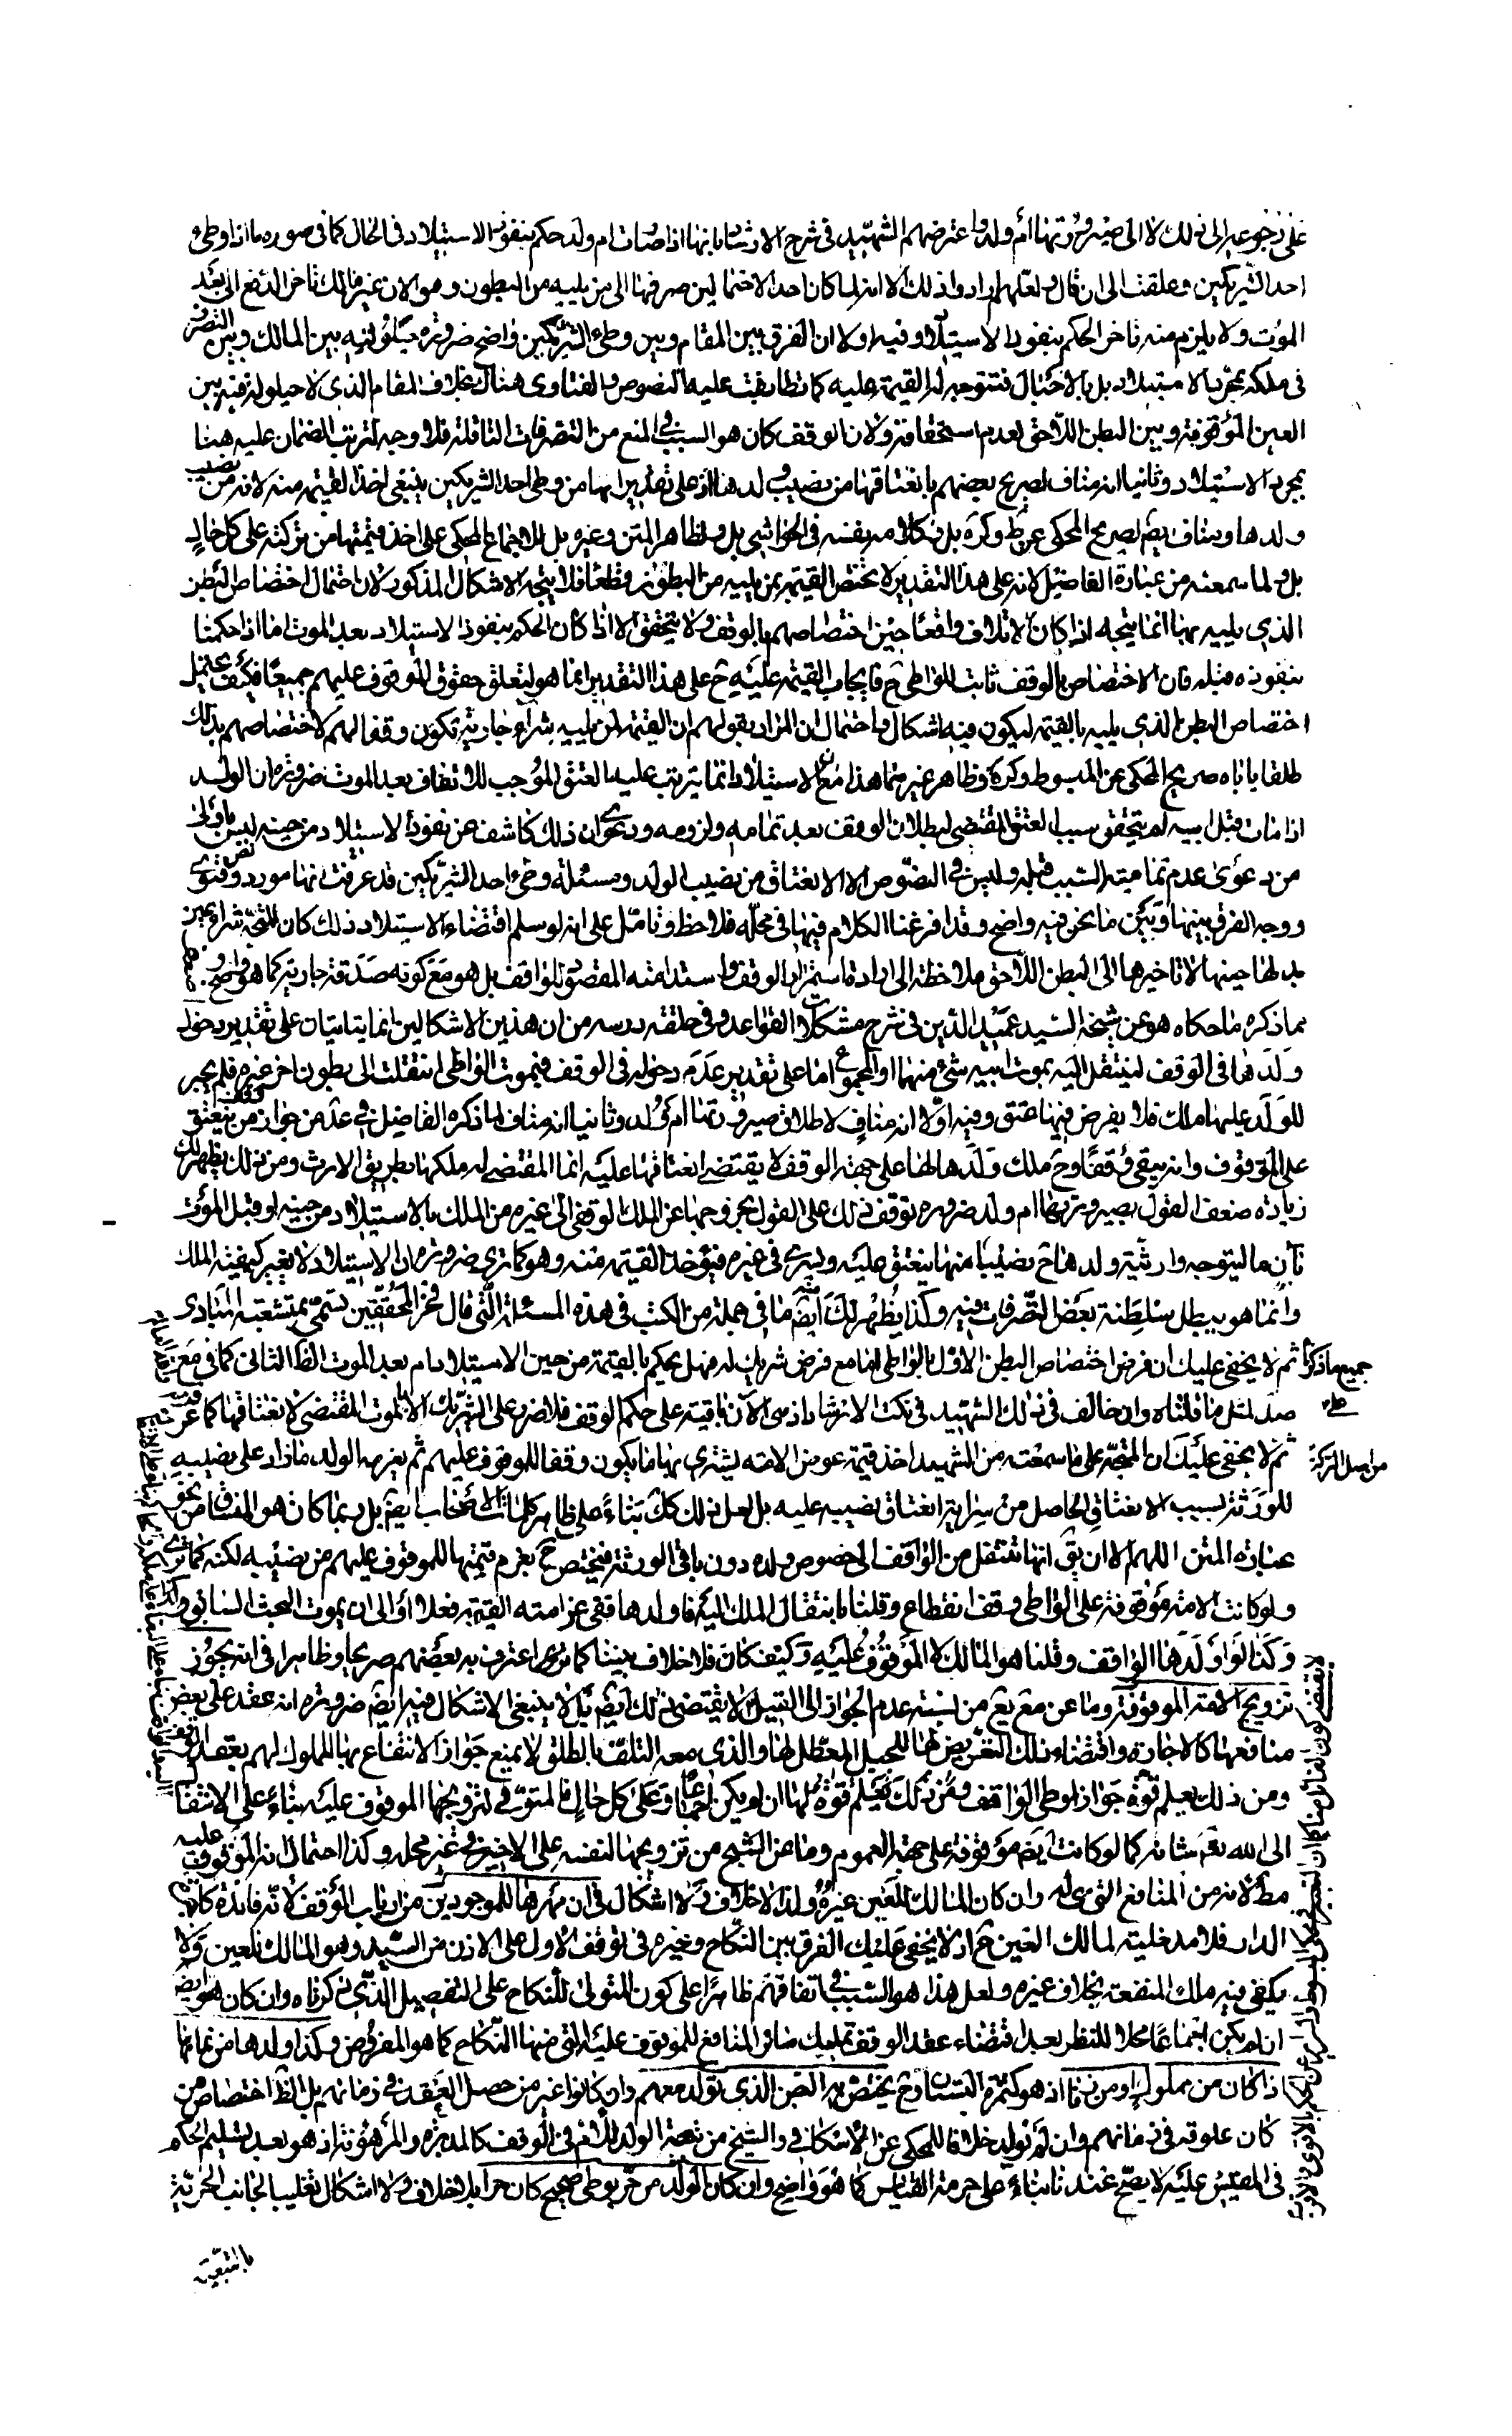 على رجوعه الى ذلك لا الى صيرورتها أم ولد واعترضهم الشهيد في شرح الارشاد بانها اذا صارت ام ولد حكم بنفوذ الاستيلاد في الحال كما في صورة ما اذا وطئ
احد الشريكين وعلقت الى ان قال ولعلهم ارادوا ذلك الا انه لما كان احد الاحتمالين صرفها الى من يليه من البطون وهو الان غير مالك تاخر الدفع الى بعد
الموت ولا يلزم منه تاخر الحكم بنفوذ الاستيلاد وفيه اولا ان الفرق بين المقام وبين وطئ الشريكين واضح ضرورة حيلولته بين المالك وبين التصرف
في ملكه بمجرد الاستيلاد بل بالاحبال فتتوجه له القيمة عليه كما تطابقت عليه النصوص والفتاوى هناك بخلاف المقام الذي لا حيلولة فيه بين
العين الموقوفة وبين البطن اللاحق لعدم استحقاقه ولان الوقف كان هو السبب في المنع من التصرفات الناقلة فلا وجه لترتب الضمان عليه هنا
بمجرد الاستيلاد وثانيا انه مناف لصريح بعضهم بانعتاقها من نصيب ولدها اذ على تقدير انها من وطئ احد الشريكين ينبغي اخذ القيمة منه لا من نصيب
ولدها ومناف ايضا لصريح المحكي عن ط وكره بل وكلامه نفسه في الحواشي بل ولظاهر المتن وغيره بل للاجماع المحكي على اخذ قيمتها من تركته على كل حال
بل ولما سمعته من عبارة الفاضل لانه على هذا التقدير لا تختص القيمة بمن يليه من البطون قطعا فلا يتجه الاشكال المذكور لان احتمال اختصاص البطن
الذي يليه بها انما يتجه اذا كان الاتلاف واقعا حين اختصاصهم بالوقف ولا يتحقق الا اذا كان الحكم بنفوذ الاستيلاد بعد الموت اما اذا حكمنا
بنفوذه قبله فان الاختصاص بالوقف ثابت للواطئ ح فايجاب القيمة عليه ح على هذا التقدير انما هو لتعلق حقوق الموقوف عليهم جميعا فكيف يحتمل
اختصاص البطن الذي يليه بالقيمة ليكون فيه اشكال واحتمال ان المراد بقولهم ان القيمة لمن يليه شراء جارية تكون وقفا لهم لا اختصاصهم بذلك
طلقا ياباه صريح المحكي عن المبسوط وكرة وظاهر غيرهما هذا مع ان الاستيلاد انما يترتب عليه العتق الموجب للاتلاف بعد الموت ضرورة ان الولد
اذا مات قبل ابيه لم يتحقق سبب العتق المقتضي لبطلان الوقف بعد تمامه ولزومه ودعوى ان ذلك كاشف عن نفوذ الاستيلاد من حينه ليس باولى
من دعوى عدم تمامية السبب قبله وليس في النصوص الا الانعتاق من نصيب الولد ومسئلة وطئ احد الشريكين قد عرفت انها مورد نص وفتوى
ووجه الفرق بينها وبين ما نحن فيه واضح وقد افرغنا الكلام فيها في محله فلاحظ وتامل على انه لو سلم اقتضاء الاستيلاد ذلك كان المتجه شراء عين
بدلها حينها لا تاخيرها الى البطن اللاحق ملاحظة الى ارادة استمرار الوقف واستدامته المقصود للواقف بل هو مع كونه صدقة جارية كما هو واضح
مما ذكره ما حكاه هو عن شيخه السيد عميد الدين في شرح مشكلات القواعد وفي حلقة درسه من ان هذين الاشكالين انما يتاتيان على تقدير دخول
ولدها في الوقف لينتقل اليه بموت ابيه شيء منها او المجموع اما على تقدير عدم دخوله في الوقف فبموت الواطئ انتقلت الى بطون اخر غيره فلم يجبر
للولد عليها ملك فلا يفرض فيها عتق وفيه اولا انه مناف لاطلاق صيرورتها ام ولد وثانيا انه مناف لما ذكره الفاضل في عد من جواز وقف من ينعتق
على الموقوف وانه يبقى وقفا وح ملك ولدها لها على جهة الوقف لا يقتضي انعتاقها عليه انما المقتضي له ملكها بطريق الارث ومن ذلك يظهر لك
زيادة ضعف القول بصيرورتها ام ولد ضرورة توقف ذلك على القول بخروجها عن الملك الوقفي الى غيره من الملك بالاستيلاد من حينه او قبل الموت
بآن ما ليتوجه وارثية ولدها ح نصيبا منها ينعتق عليه ويسري في غيره فيؤخذ القيمة منه وهو كما ترى ضرورة ان الاستيلاد لا يغير كيفية الملك
وانما هو يبطل سلطنة بعض التصرفات فيه وكذا يظهر لك ايضا ما في جملة من الكتب في هذه المسئلة التي قال فخر المحققين تسمى بمتشعبة المبادي
جميع ما ذكرنا ثم لا يخفى عليك ان فرض اختصاص البطن الاول بالواطئ اما مع فرض شريك له فهل يحكم بالقيمة من حين الاستيلاد ام بعد الموت الظ الثاني كما في مع
صد لمثل ما قلناه وان خالف في ذلك الشهيد في نكت الارشاد اذ هي الآن باقية على حكم الوقف فلا ضرر على الشريك الا بالموت المقتضي لانعتاقها كما عرفت
ثم لا يخفى عليك ان المتجه على ما سمعته من الشهيد اخذ قيمة عوض الامة يشترى بها ما يكون وقفا للموقوف عليهم ثم يغرم الولد ما زاد على نصيبه
من اصل التركة
للورثة بسبب الانعتاق الحاصل من سراية انعتاق نصيبه عليه بل لعل ذلك كك بناء على ظاهر كلمات الاصحاب ايضا بل ربما كان هو المنساق من نحو
عبارة المتن اللهم الا ان يق انها تنتقل من الواقف الى خصوص ولده دون باقي الورثة فيختص ح بغرم قيمتها للموقوف عليهم من نصيبه لكنه كما ترى
ولو كانت الامة موقوفة على الواطئ وقف انقطاع وقلنا بانتقال الملك اليه فاولدها ففي غرامته القيمة فعلا او الى ان يموت البحث السابق
وكذا لو اولدها الواقف وقلنا هو المالك لا الموقوف عليه وكيف كان فلا خلاف بيننا كما اعترف به بعضهم صريحا وظاهرا في انه يجوز
تزويج الامة الموقوفة وما عن مع يع من نسبة عدم الجواز الى القيل لا يقتضي ذلك ايضا بل لا ينبغي الاشكال فيه ايضا ضرورة انه عقد على بعض
منافعها كالاجارة واقتضاء ذلك التعريض لها للحبل المعطل لها والذي معه التلف بالطلق لا يمنع جواز الانتفاع بها المملوك لهم بعقد الوقف
ومن ذلك يعلم قوة جواز لوطئ الواقف ومن ذلك يعلم قوة ان لم يكن اجماعا وعلى كل حال فالمتولي لتزويجها الموقوف عليه بناء على الانتقا
الى الله تعم شانه كما لو كانت ايضا موقوفة على جهة العموم وما عن الشيخ من تزويجها لنفسه على الاخير في غير محله وكذا احتمال انه الموقوف عليه
مط لانه من المنافع التي له وان كان المالك للعين غيره ولذا لا خلاف ولا اشكال في ان مهرها للموجودين من ارباب الوقف لانه فائدة كاجرة
الدار فلا مدخلية لمالك العين ح اذ لا يخفى عليك الفرق بين النكاح وغيره في توقف الاول على الاذن من السيد وهو المالك للعين ولا
يكفي فيه ملك المنفعة بخلاف غيره ولعل هذا هو السبب في اتفاقهم ظاهرا على كون المتولي للنكاح على التفصيل الذي ذكرناه وان كان هو ايضا
ان لم يكن اجماعا محلا للنظر بعد اقتضاء عقد الوقف تمليك سائر المنافع للموقوف عليه التي منها النكاح كما هو المفروض وكذا ولدها من نمائها
اذا كان من مملوك او من زنا اذ هو كثمرة البستان وح يختص به البطن الذي تولد معهم وان كانوا غير من حصل العقد في زمانهم بل الظ اختصاص من
كان علوقه في زمانهم وان لم يولد خلافا للمحكي عن الاسكافي والشيخ من تبعية الولد للام في الوقف كالمدبرة والمرهونة اذ هو بعد تسليم الحكم
في المقيس عليه لا يصح عندنا بناء على حرمة القياس كما هو واضح وان كان الولد من حر بوطئ صحيح كان حرا بلا خلاف ولا اشكال تغليبا لجانب الحرية
بالتبعية